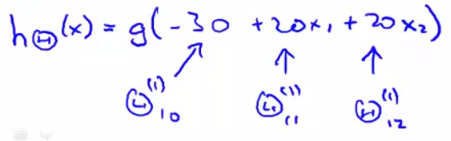 hΘ(x) = g(-30 + 20x₁ + 20x₂)
Θ₁₀⁽¹⁾ Θ₁₁⁽¹⁾ Θ₁₂⁽¹⁾